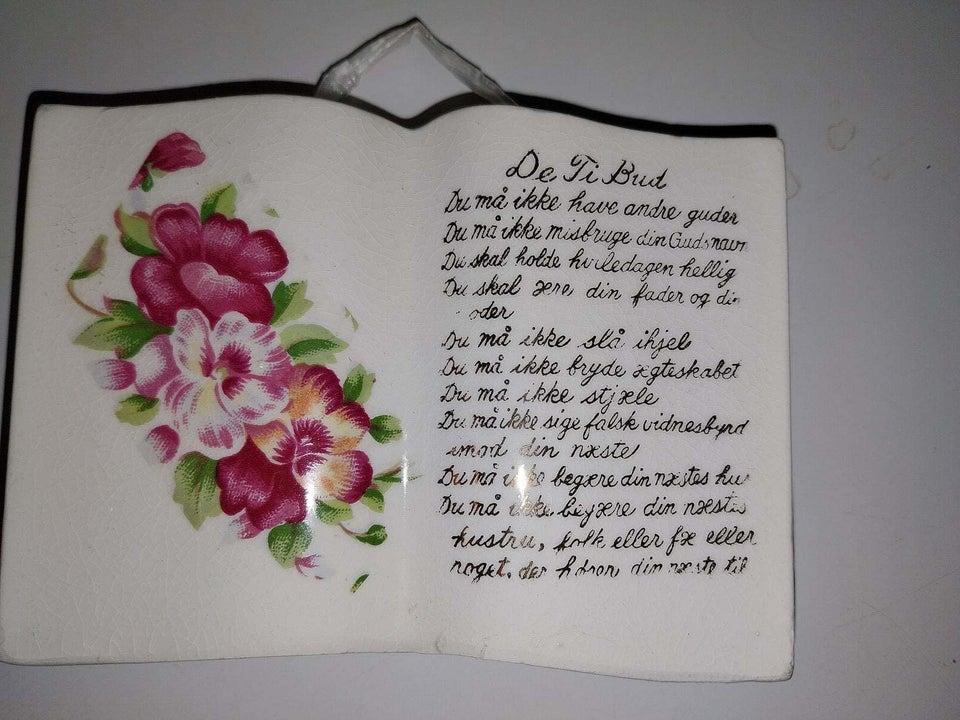 De Ti Bud
Du må ikke have andre guder
Du må ikke misbruge din Guds navn
Du skal holde hviledagen hellig
Du skal ære din fader og din
oder
Du må ikke slå ihjel
Du må ikke bryde ægteskabet
Du må ikke stjæle
Du må ikke sige falsk vidnesbyrd
imod din næste
Du må ikke begære din næstes hu
Du må ikke begære din næstes
hustru, folk eller fæ eller
noget, der hører din næste til